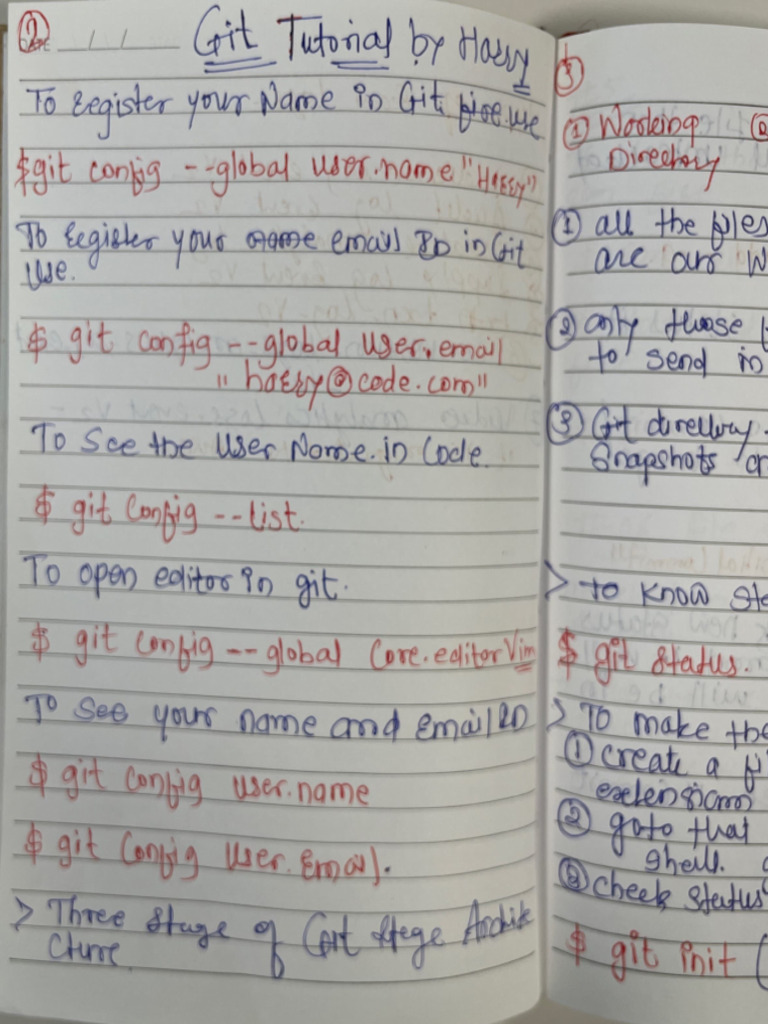 2
Git Tutorial by Harry
To register your Name in Git use
$git config --global user.name "Harry"
To register your email ID in Git
Use.
$ git config --global user.email
"harry@code.com"
To See the User Name in Code.
$ git config --list.
To open editor in git.
$ git config --global core.editor Vim
To See your name and email ID
$ git config user.name
$ git config User.Email.
> Three Stage of Git Stege Archite
cture.
3
1 Working
Directory
1 all the files
are our W
2 only those
to send in
3 Git directory.
Snapshots or
> to know sta
$ git status.
> To make the
1 create a fi
extension
2 goto that
shell.
3 check status
$ git init (